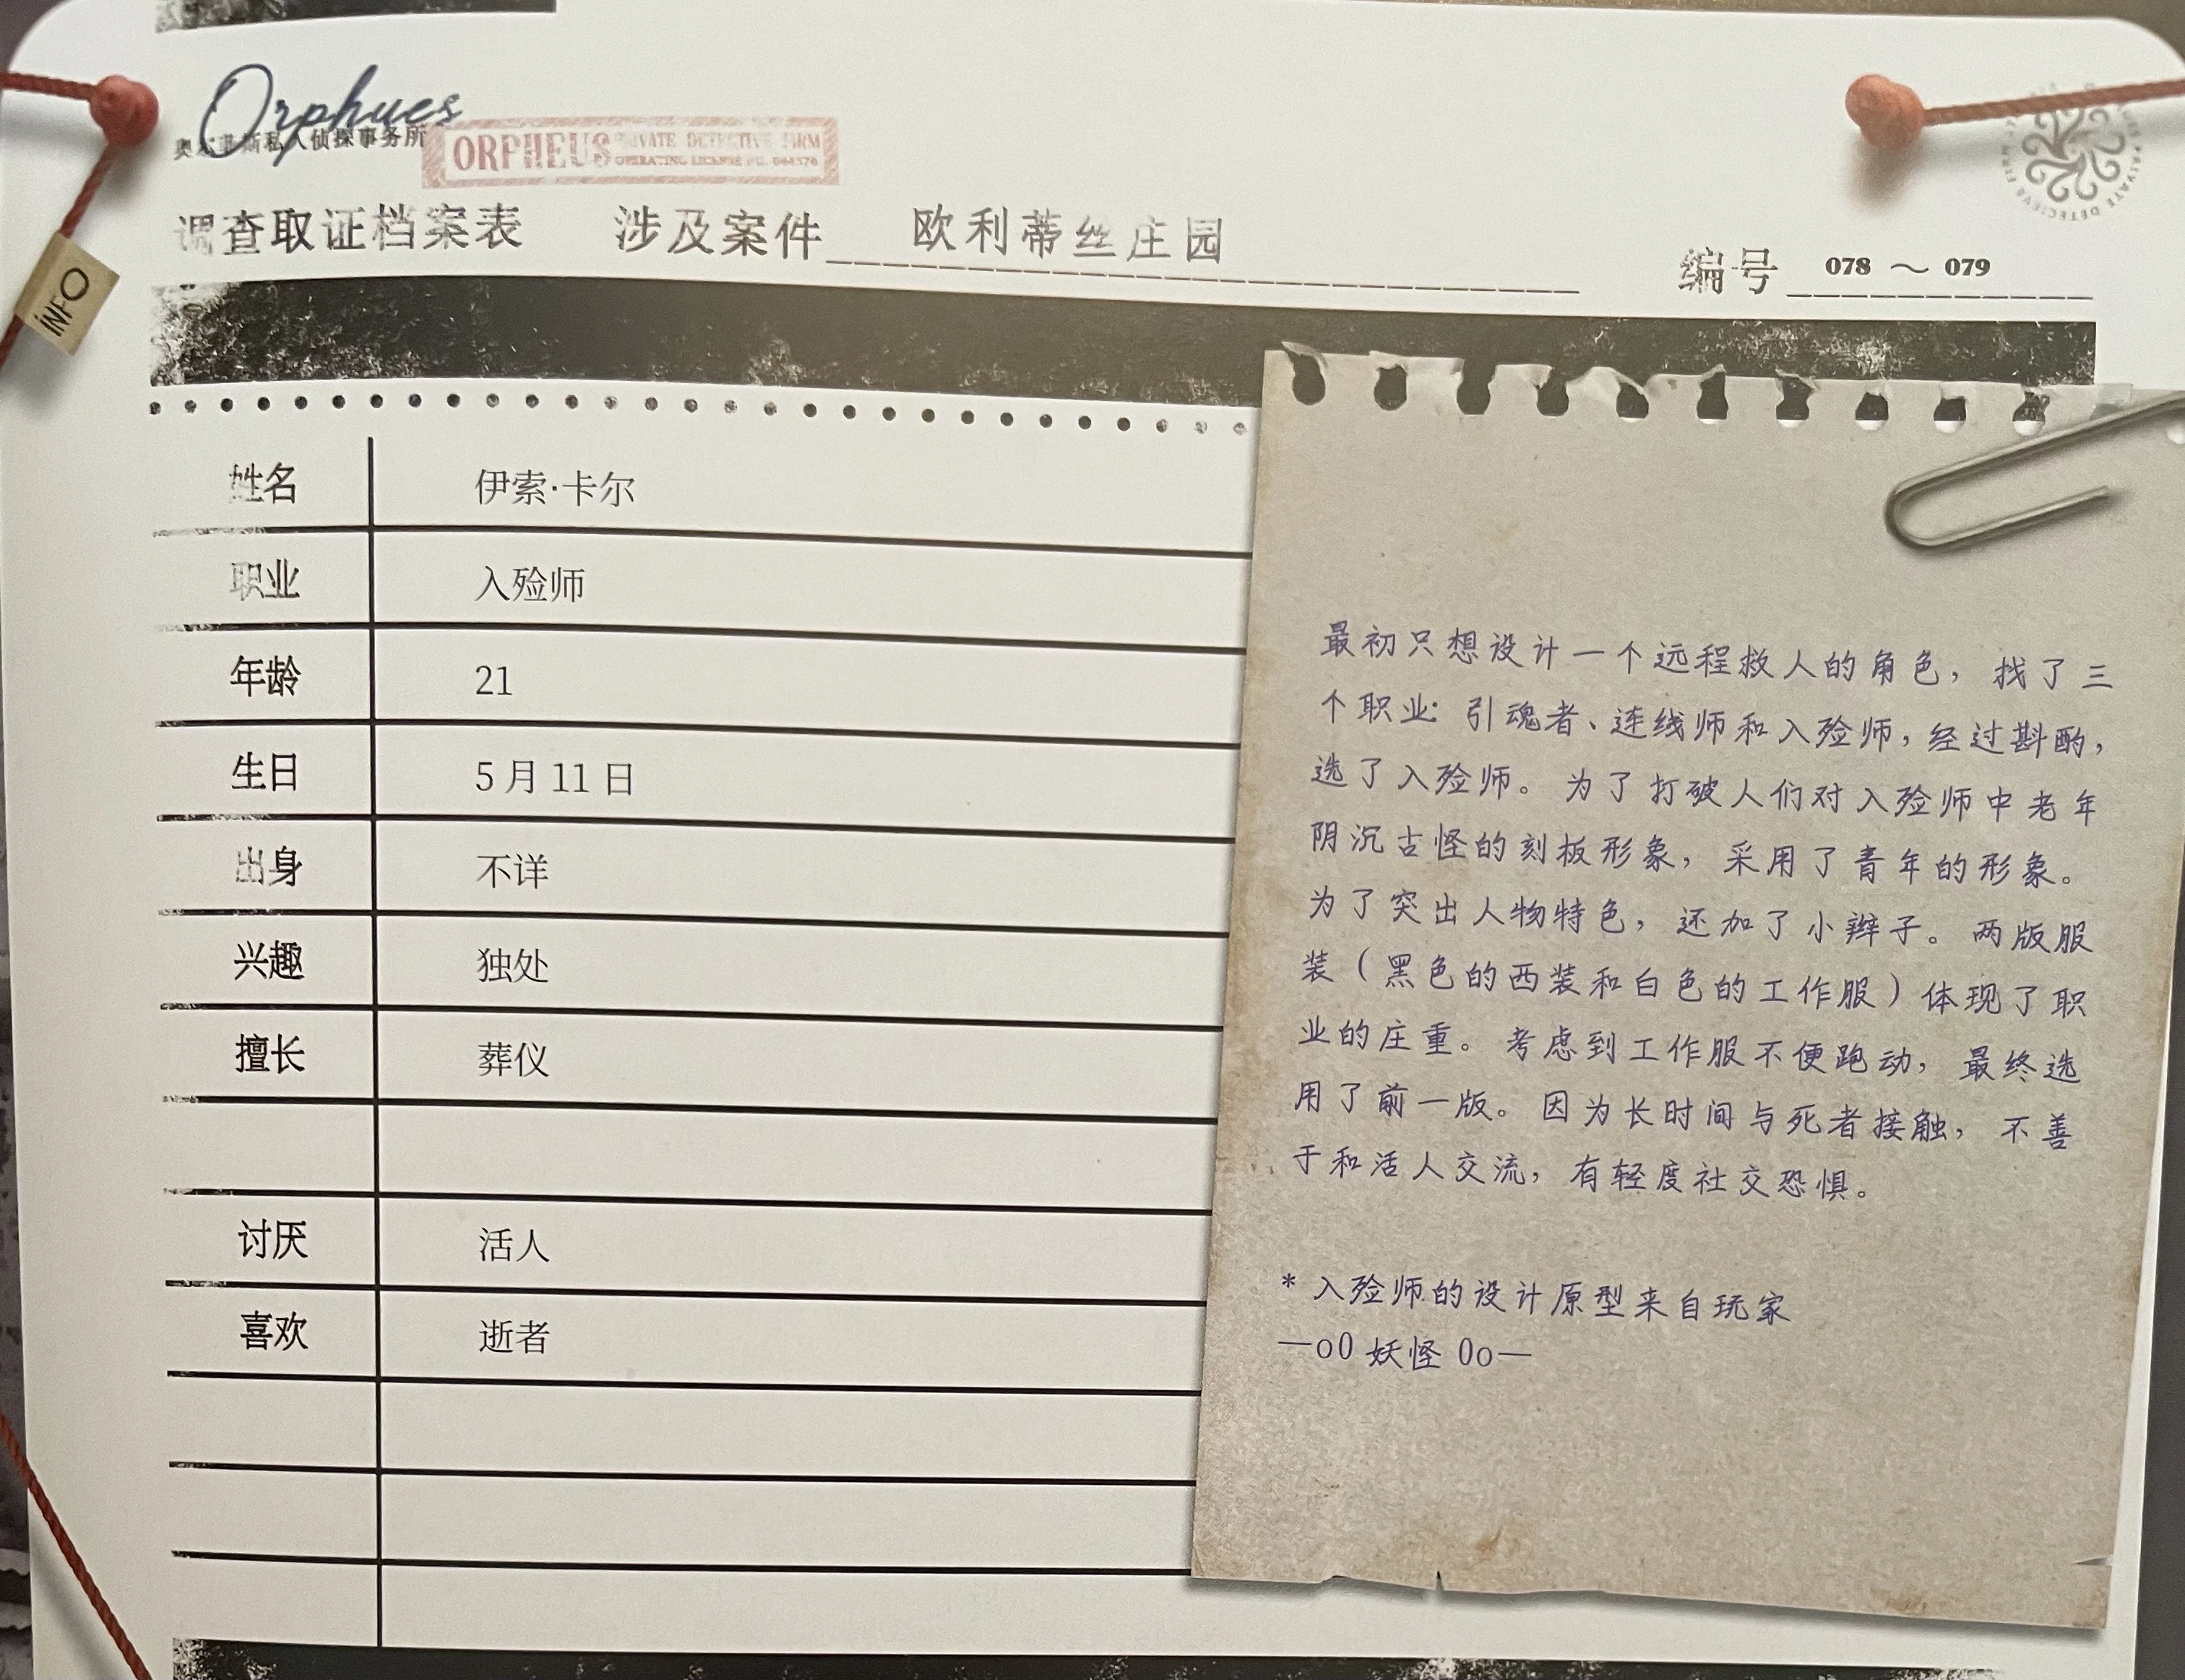 Orphues
奥尔菲斯私人侦探事务所
ORPHEUS PRIVATE DETECTIVE FIRM
OPERATING LICENSE NO.
调查取证档案表 涉及案件 欧利蒂丝庄园
编号 078 ～ 079
INFO
姓名 伊索·卡尔
职业 入殓师
年龄 21
生日 5月11日
出身 不详
兴趣 独处
擅长 葬仪
讨厌 活人
喜欢 逝者
最初只想设计一个远程救人的角色，找了三
个职业：引魂者、连线师和入殓师，经过斟酌，
选了入殓师。为了打破人们对入殓师中老年
阴沉古怪的刻板形象，采用了青年的形象。
为了突出人物特色，还加了小辫子。两版服
装（黑色的西装和白色的工作服）体现了职
业的庄重。考虑到工作服不便跑动，最终选
用了前一版。因为长时间与死者接触，不善
于和活人交流，有轻度社交恐惧。
* 入殓师的设计原型来自玩家
—o0 妖怪 0o—